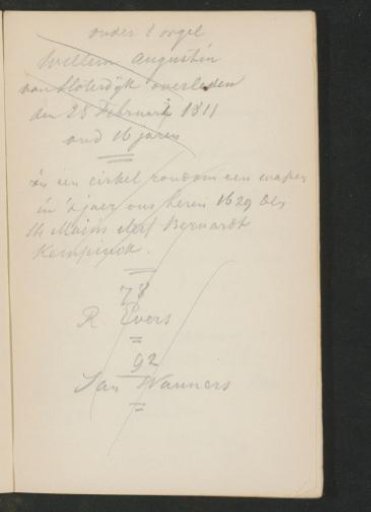 onder 't orgel
Willem Augustin
van Sloterdyk overleden
den 28 Februari 1811
oud 16 jaren
in een cirkel rondom een wapen
in 't jaer ons heren 1629 den
Bernardt
78
R Evers
92
Jan Wanners